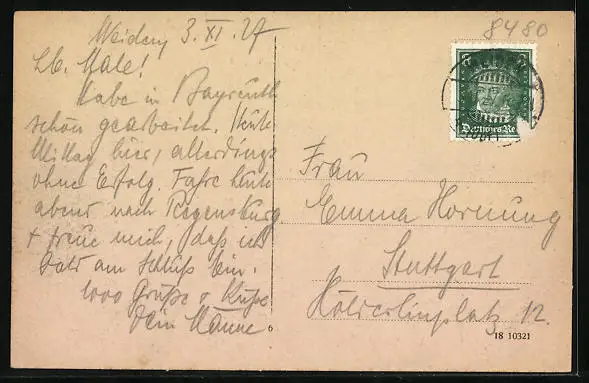 8480
Weiden, 3. XI. 27
Lb. Male!
Habe in Bayreuth
schön gearbeitet. Heute
Mittag hier, allerdings
ohne Erfolg. Fahre heute
abend nach Regensburg
+ freue mich, daß ich
bald am Schluß bin.
1000 Grüße & Küsse
Dein Manne
Deutsches Re
Frau
Emma Hornung
Stuttgart
Hölderlinplatz 12.
6
18 10321